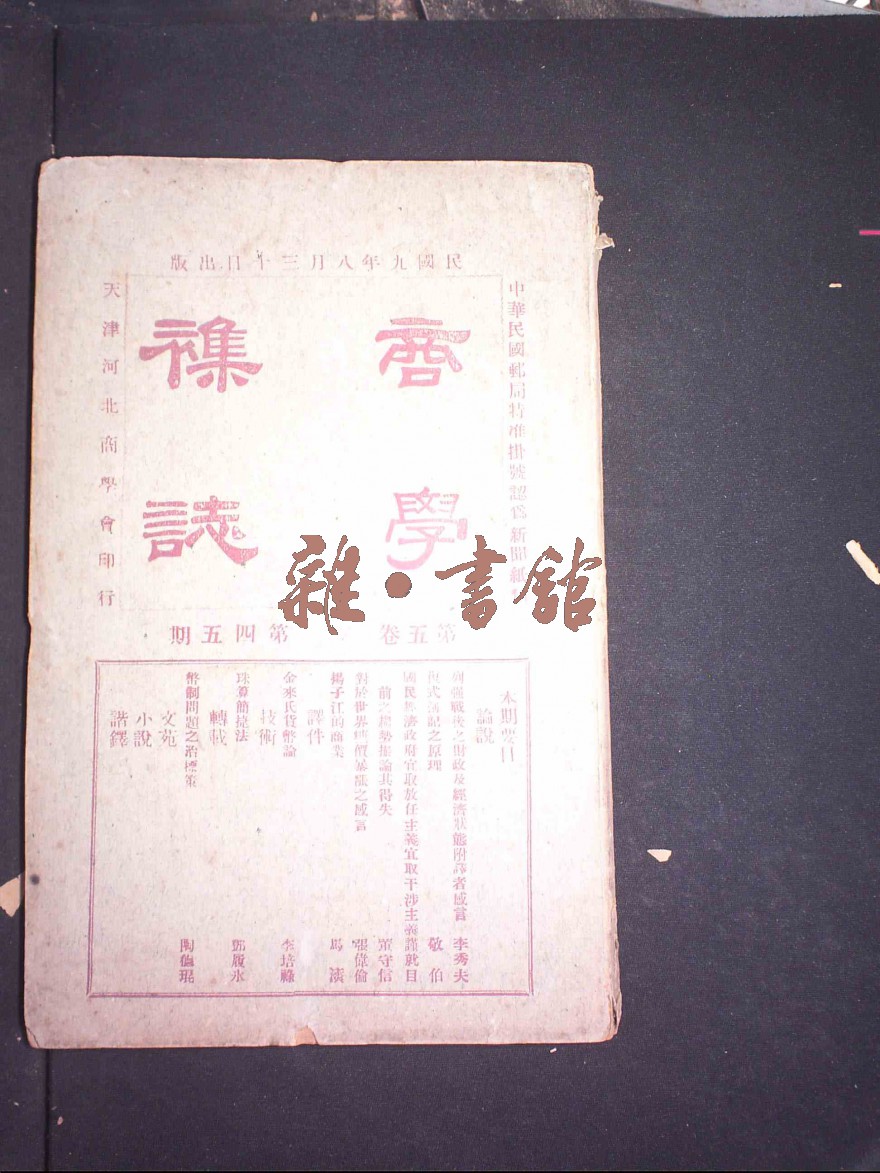 民國九年八月三十日出版
中華民國郵局特准掛號認爲新聞紙
商學
襍誌
天津河北商學會印行
第五卷
第四五期
雜·書館
本期要目
論說
列強戰後之財政及經濟狀態附譯者感言 李秀夫
復式簿記之原理 敬伯
國民經濟政府宜取放任主義宜取干涉主義謹就目
前之趨勢推論其得失 董守信
對於世界物價暴漲之感言 張偉倫
揚子江的商業 馬
譯件
金來氏貨幣論 李培祿
技術
珠算簡捷法 鄧履冰
轉載
幣制問題之治標策 陶德琨
文苑
小說
諧鐸